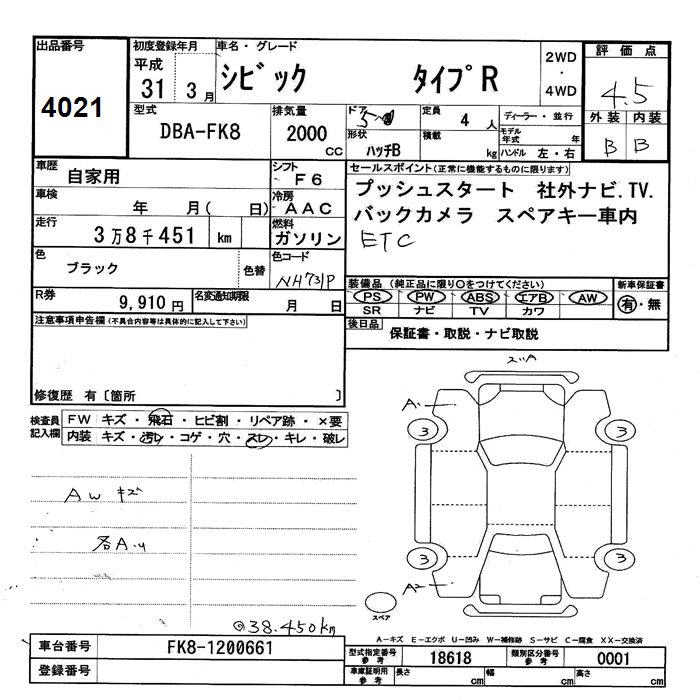 出品番号
4021
初度登録年月
平成
31 3月
車名・グレード
シビック タイプR
2WD
・
4WD
評価点
4.5
外装 内装
B B
型式
DBA-FK8
排気量
2000
cc
ドア
5
形状
ハッチB
定員
4 人
積載
kg
ディーラー・並行
モデル
年式 年
ハンドル 左・右
車歴
自家用
シフト
F6
車検
年 月( 日)
冷房
AAC
走行
3万8千451 km
燃料
ガソリン
色
ブラック
色替
色コード
NH731P
R券
9,910円
名変通知期限
月 日
セールスポイント(正常に機能するものに限ります)
プッシュスタート 社外ナビ.TV.
バックカメラ スペアキー車内
ETC
装備品(純正品に限り○をつけてください)
PS PW ABS エアB AW
SR ナビ TV カワ
新車保証書
有・無
後日品
保証書・取説・ナビ取説
注意事項申告欄(不具合内容等は具体的に記入して下さい)
修復歴 有〔箇所 〕
検査員
記入欄
FW キズ・飛石・ヒビ割・リペア跡・×要
内装 キズ・汚レ・コゲ・穴・スレ・キレ・破レ
AW キズ
各A.U
◎38.450km
A
3
3
3
3
A2
スペア
A-キズ E-エクボ U-凹み W-補修跡 S-サビ C-腐食 XX-交換済
車台番号
FK8-1200661
登録番号
型式指定番号
参考
18618
類別区分番号
参考
0001
車庫証明用
参考
長さ cm
幅 cm
高さ cm